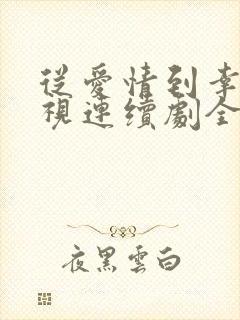 從愛情到幸
視連續劇全
夜黑雲白